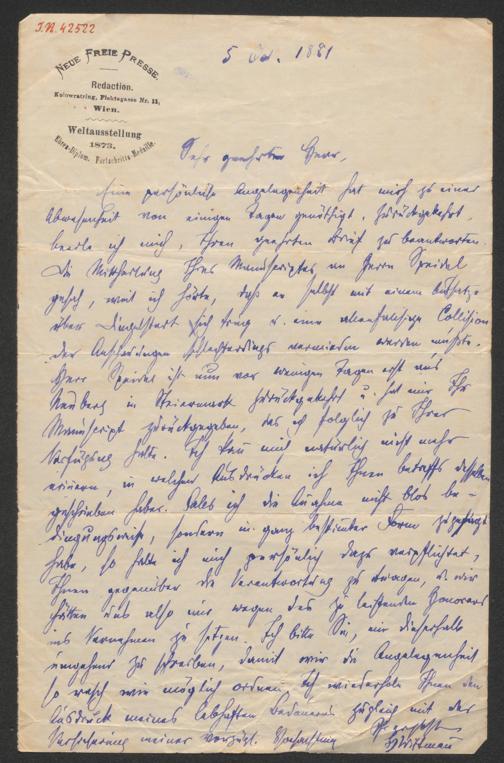 J.N. 42522
NEUE FREIE PRESSE.
Redaction.
Kolowratring, Fichtegasse Nr. 11,
Wien.
Weltausstellung
1873.
Ehren-Diplom. Fortschritts-Medaille.
5 Oct. 1881
Sehr geehrter Herr,
Eine persönliche Angelegenheit hat mich zu einer
Abwesenheit von einigen Tagen genöthigt. Zurückgekehrt,
beeile ich mich, Ihren geehrten Brief zu beantworten.
Die Mittheilung Ihres Manuscriptes an Herrn Speidel
geschah, weil ich hörte, daß er selbst mit einem Aufsatze
über Dingelstedt sich trug u. eine allenfallsige Collision
der Anschauungen schlechterdings vermieden werden mußte.
Herr Speidel ist nun vor wenigen Tagen erst aus
Neuberg in Steiermark zurückgekehrt u. hat mir Ihr
Manuscript zurückgegeben, das ich folglich zu Ihrer
Verfügung halte. Ich kann mich natürlich nicht mehr
erinnern in welchen Ausdrücken ich Ihnen betreffs desselben
geschrieben habe. Falls ich die Annahme nicht blos be-
dingungsweise, sondern in ganz bestimmter Form zugesagt
habe, so halte ich mich persönlich dazu verpflichtet,
Ihnen gegenüber die Verantwortung zu tragen, u. wir
hätten uns also nur wegen des zu leistenden Honorars
ins Vernehmen zu setzen. Ich bitte Sie, mir dieserhalb
umgehend zu schreiben, damit wir die Angelegenheit
so rasch wie möglich ordnen. Ich wiederhole Ihnen den
Ausdruck meines lebhaften Bedauerns zugleich mit der
Versicherung meiner vorzügl. Hochachtung
Ihr ergebenster
HWittmann